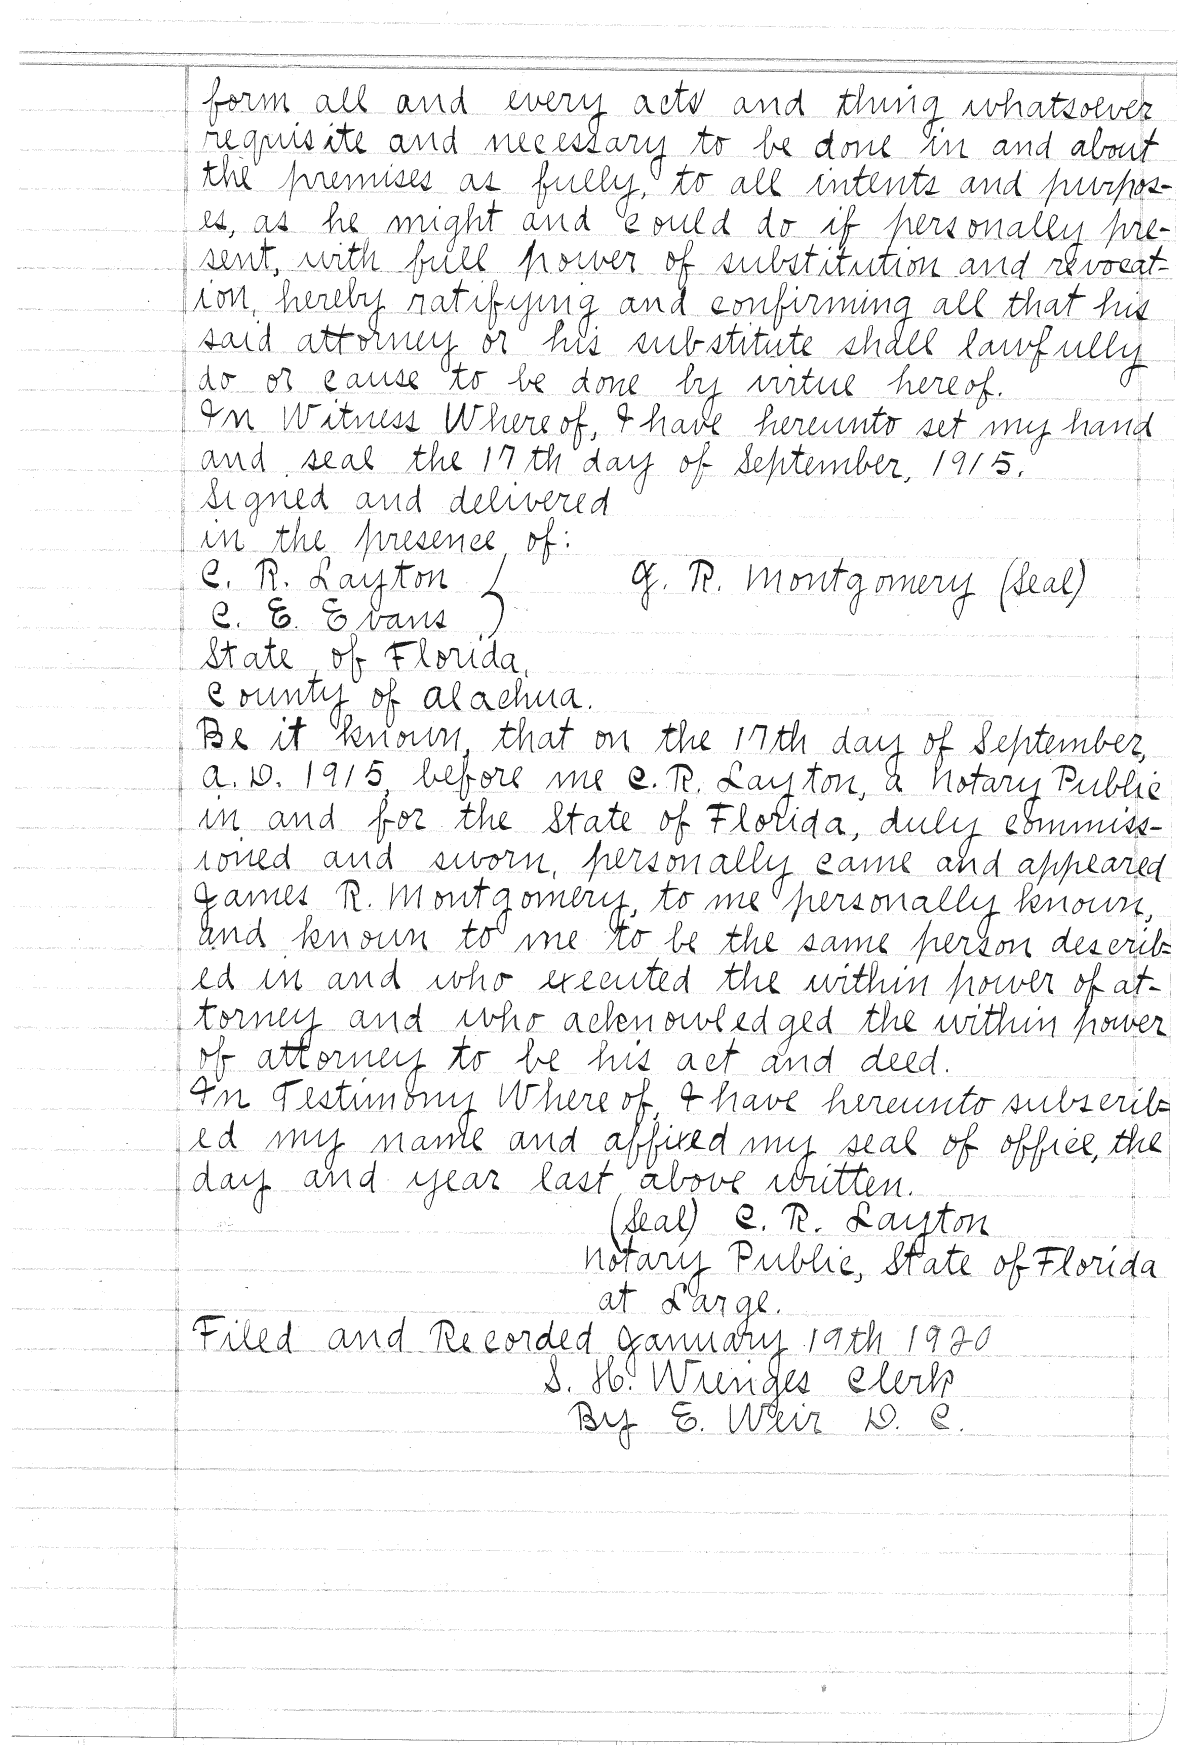 form all and every acts and thing whatsoever
requisite and necessary to be done in and about
the premises as fully, to all intents and purpos-
es, as he might and could do if personally pre-
sent, with full power of substitution and revocat-
ion, hereby ratifying and confirming all that his
said attorney or his substitute shall lawfully
do or cause to be done by virtue hereof.
In Witness Whereof, I have hereunto set my hand
and seal the 17th day of September, 1915.
Signed and delivered
in the presence of:
C. R. Layton J. R. Montgomery (Seal)
C. E. Evans
State of Florida,
County of Alachua.
Be it known, that on the 17th day of September,
A. D. 1915, before me C. R. Layton, a Notary Public
in and for the State of Florida, duly commiss-
ioned and sworn, personally came and appeared
James R. Montgomery, to me personally known,
and known to me to be the same person describ=
ed in and who executed the within power of at-
torney and who acknowledged the within power
of attorney to be his act and deed.
In Testimony Whereof, I have hereunto subscrib=
ed my name and affixed my seal of office, the
day and year last above written.
(Seal) C. R. Layton
Notary Public, State of Florida
at Large.
Filed and Recorded January 19th 1920
S. H. Wienges Clerk
By E. Weir D. C.